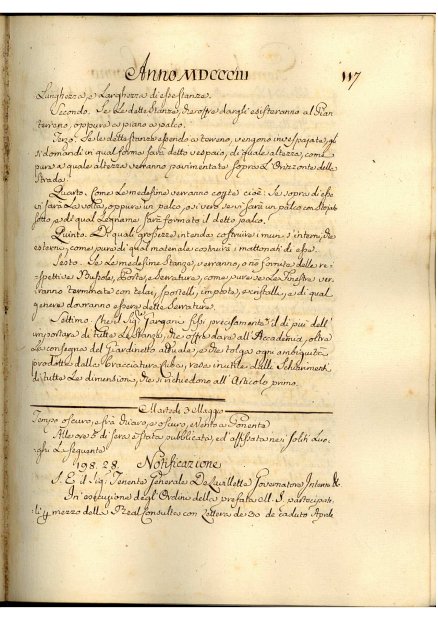 Anno MDCCCIII 117
Lunghezza, e Larghezza di esse stanze.
Secondo. Se le dette Stanze, che offre dargli esisteranno al Pian
terreno, oppure a piano a palco.
Terzo. Se le dette stanze essendo a terreno, vengono inversapate, gli
si domandi in qual forma sarà detto vespaio, di quale altezza, come
pure a quale altezza verranno pavimentate sopra l'Orizzonte della
Strada.
Quarto. Come le medesime verranno coperte cioè: Se sopra di esse
vi sarà la volta, oppure un palco, o sivvero se vi sarà un palco con Stojato
sotto, e di qual Legname sarà formato il detto palco.
Quinto. Di quali grossezze intenda costruire i muri, interni, ed
esterni, come pure di qual materiale costruirà i mattonati di esse.
Sesto. Se le medesime Stanze, verranno, o no fornite delle re-
spettive Bussole, Porte, e Serrature, come pure se le Finestre ver-
ranno terminate con telai, sportelli, imposte, e cristalli, e di qual
genere dovranno essere dette Serrature.
Settimo. Che il Sig.
fissi precisamente il di più dell'
importare di tutte le Stanze, che offre dare all'Accademia, oltre
la consegna del Giardinetto attuale, e che tolga ogni ambiguità
prodotta dalla Bracciatura Cuba, resa inutile dalle
di tutte le dimensioni, che si richiedono all'Articolo primo.
Martedì 3 Maggio
Tempo oscuro, e frà chiaro, e oscuro, e Vento a Ponente
Alle ore 8 di sera è stata pubblicata, ed affissata nei soliti Luo-
ghi la seguente
198. 28. Notificazione
S. E. il Sig. Tenente Generale De Quallette Governatore Interno &
In esecuzione degli Ordini della prefata M. S. partecipati-
li per mezzo della Real Consulta con Lettera de 30 del caduto Aprile